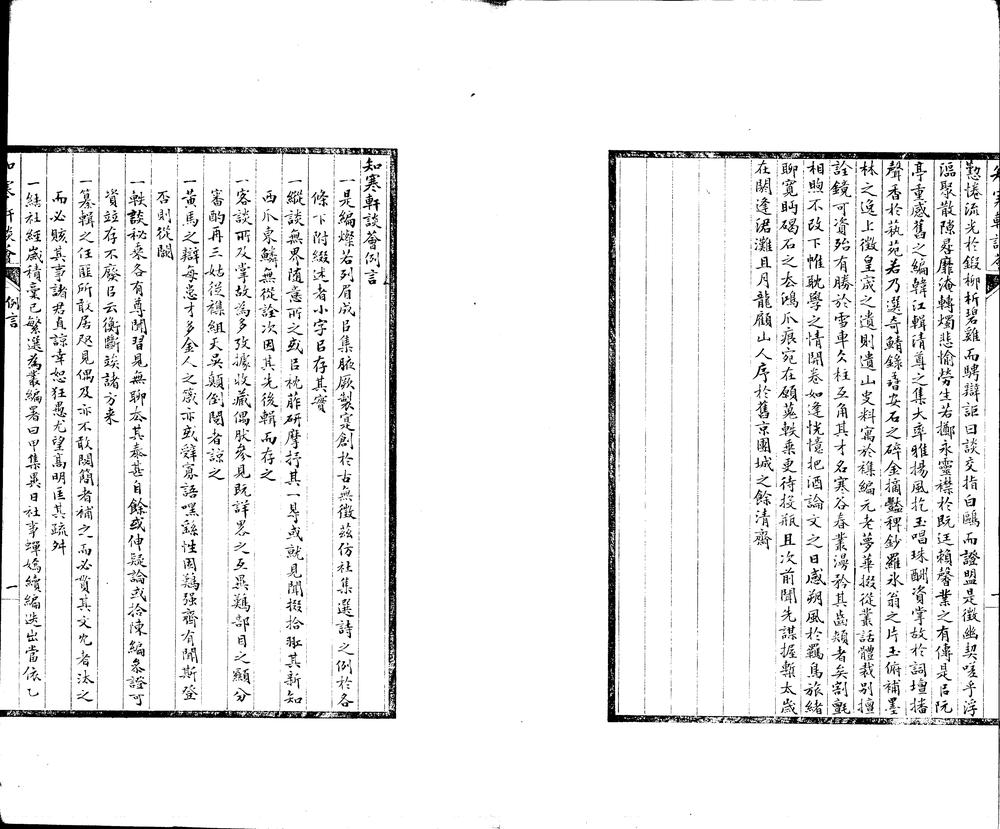 勤惓流光於鍛柳析碧雞而騁辯詎曰談交指白鷗而證盟是徵幽契嗟乎浮
漚聚散隙晷靡淹轉燭悲愉勞生若擲永靈襟於既迋賴馨業之有傳是㠯阮
亭重感舊之編韓江輯清尊之集大率雅揚風扢玉唱珠酬資掌故於詞壇播
聲香於執苑若乃選奇鯖錄尋安石之碎金摘豔稗鈔羅氷翁之片玉俯補墨
林之逸上徵皇宬之遺則遺山史料寓於襍編元老夢華掇從叢話體裁別擅
詮鏡可資殆有勝於雪車久柱互角其才名寒谷春叢漫矜其齒頰者矣割氈
相煦不改下帷耽學之情開卷如逢恍憶把酒論文之日感朔風於羈馬旅緒
聊寬眄碣石之厺鴻爪痕宛在願蒐軼乗更待投瓶且次前聞先謀握槧太歲
在閼逢涒灘且月龍顧山人序於舊京團城之餘清齋
知寒軒談薈例言
一是編燦若列眉成㠯集腋厥製寔創於古無徵茲仿社集選詩之例於各
條下附綴述者小字㠯存其實
一縱談無界隨意所之或㠯枕葄研摩抒其一得或就見聞掇拾䣊其新知
西爪東鱗無從詮次因其先後輯而存之
一客談所及掌故為多攷據收藏偶肰參見既詳畧之互異難部目之顯分
審酌再三姑從襍組天吳顛倒閱者諒之
一黃馬之辯每患才多金人之箴亦或辭寡語嘿繇性因難强齊有聞斯登
否則從闕
一軼談秘釆各有尊聞習見無聊厺其泰甚自餘或伸疑論或拾陳編叅證可
資竝存不廢㠯云衡斷竢諸方来
一纂輯之任匪所敢居咫見偶及亦不敢闕簡者補之而必貫其文冗者汰之
而必賅其事諸君直諒幸恕狂愚尤望高明匡其疏舛
一結社經歲積藁已繁選為叢編署曰甲集異日社事蟬嫣續編迭出當依乙
知寒軒談薈
例言
一